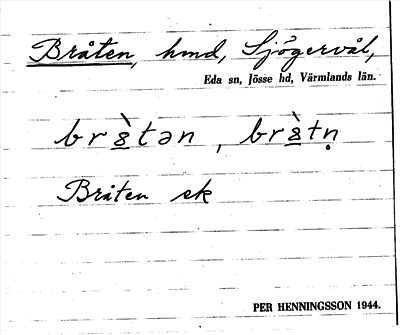 Bråten, hmd, Sjögervål,
Eda sn, Jösse hd, Värmlands län.
br8̲̀tən, br8̲̀tṇ
Bråten ek
PER HENNINGSSON 1944.